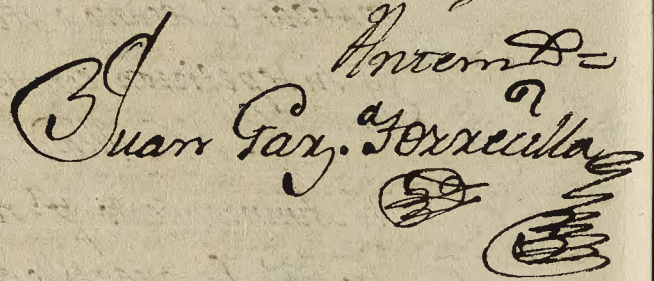 Antem
Juan Garz.ᵃ Torrecilla